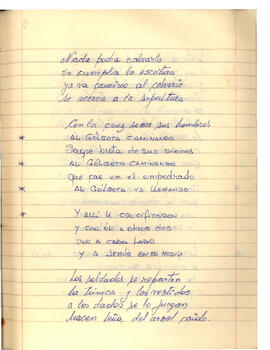 Nada podia salvarlo
se cumplia la escritura
ya va camino al calvario
se acerca a la sepultura
Con la cruz sobre sus hombros
* AL GÓLGOTA CAMINANDO
Sangre brota de sus sienes
* AL GÓLGOTA CAMINANDO
que cae en el empedrado
* AL GÓLGOTA VA LLEGANDO
* Y ALLÍ LE CRUCIFICARON
Y CON ÉL A OTROS DOS
UNO A CADA LADO
* Y A JESÚS EN EL MEDIO
Los soldados se reparten
la túnica y los vestidos
a los dados se lo juegan
hacen leña del arbol caido.